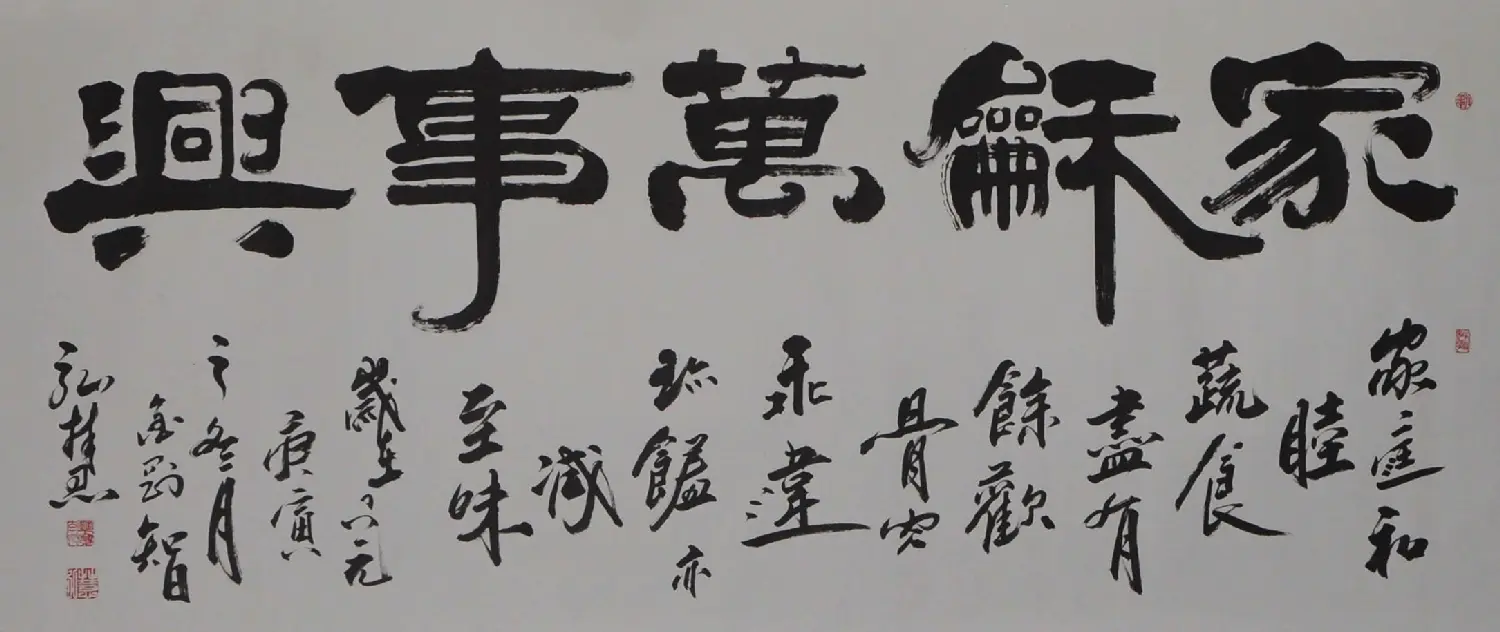 家龢萬事興
家庭和
睦
蔬食
盡有
餘歡
骨宍
乖違
珍饈亦
減
至味
歲在元
庚寅
之冬月
金剛智